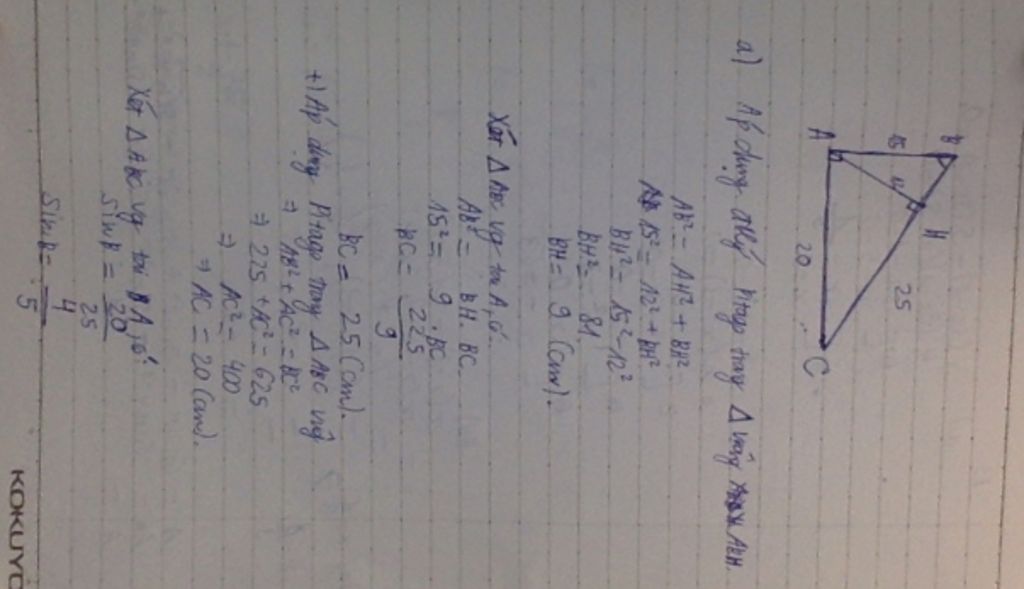 B
H
15
12
25
A
20
C
a) Áp dụng đlý Pitago trong Δ vuông ABH
AB² = AH² + BH²
15² = 12² + BH²
BH² = 15² - 12²
BH² = 81
BH = 9 (cm).
Xét Δ ABC vg tại A, có
AB² = BH. BC
15² = 9 . BC
BC = 225/9
BC = 25 (cm).
+) Áp dụng Pitago trong Δ ABC vg
⇒ AB² + AC² = BC²
⇒ 225 + AC² = 625
⇒ AC² = 400
⇒ AC = 20 (cm).
Xét Δ ABC vg tại A, có
Sin B = 20/25
Sin B = 4/5
KOKUYO